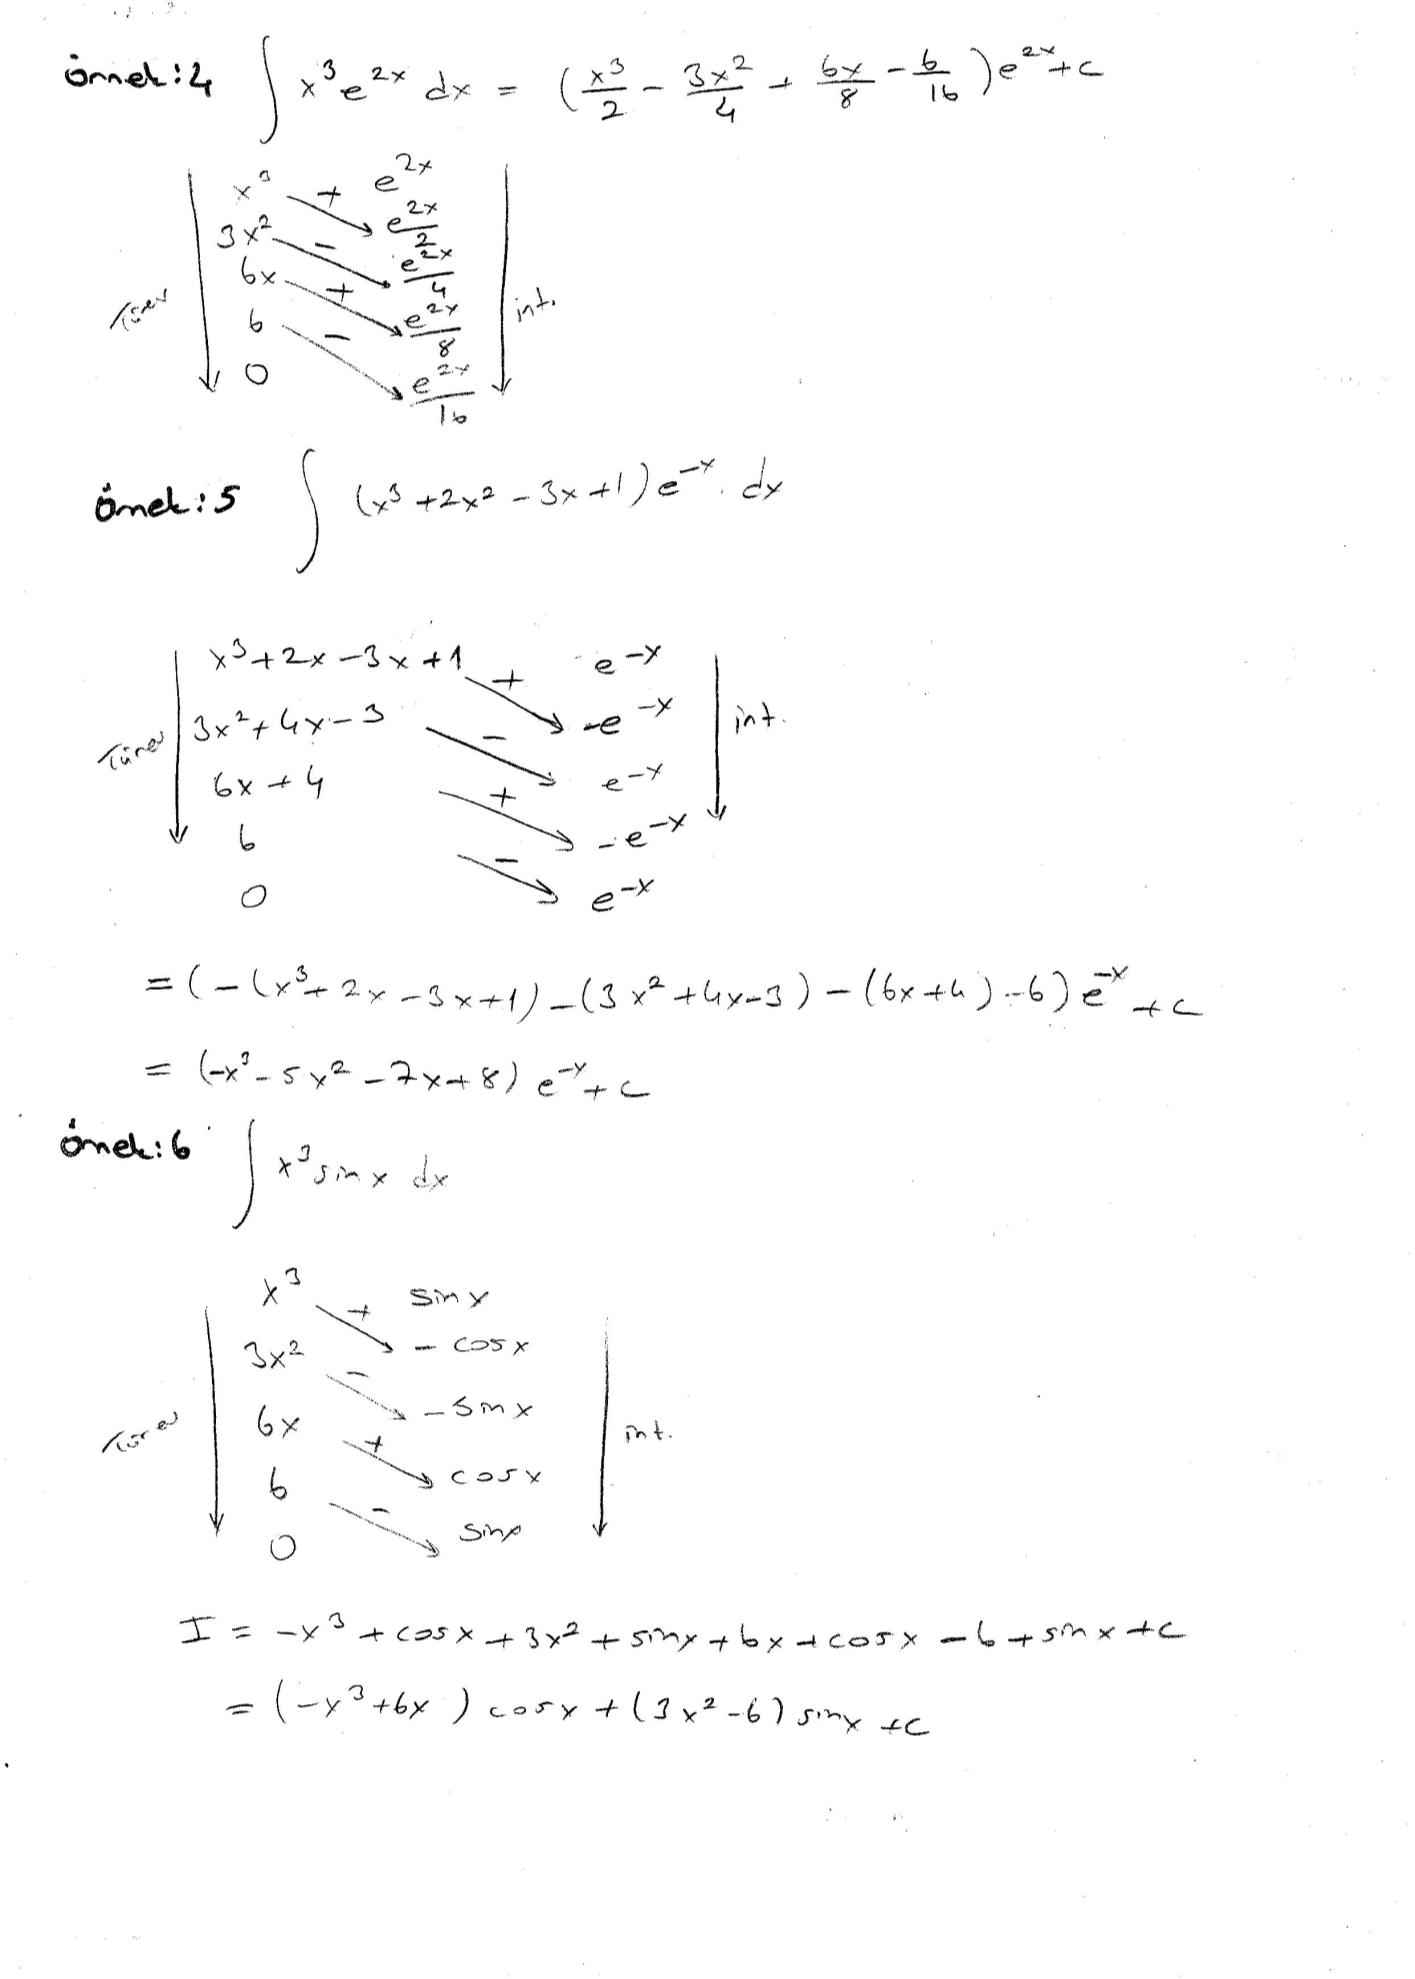 örnek:4 ∫ x³e^{2x} dx = (x³/2 - 3x²/4 + 6x/8 - 6/16)e^{2x}+c
x³ + e^{2x}
3x² - e^{2x}/2
6x + e^{2x}/4
6 - e^{2x}/8
0 e^{2x}/16
Türev int.
örnek:5 ∫ (x³+2x²-3x+1)e^{-x}.dx
x³+2x-3x+1 + e^{-x}
3x²+4x-3 - -e^{-x}
6x+4 + e^{-x}
6 - -e^{-x}
0 e^{-x}
Türev int.
=(-(x³+2x-3x+1)-(3x²+4x-3)-(6x+4)-6)e^{-x}+c
= (-x³-5x²-7x+8) e^{-x}+c
örnek:6 ∫ x³sinx dx
x³ + sinx
3x² - -cosx
6x + -sinx
6 - cosx
0 sinx
Türev int.
I = -x³+cosx+3x²+sinx+6x+cosx-6+sinx+c
= (-x³+6x) cosx+(3x²-6) sinx +c